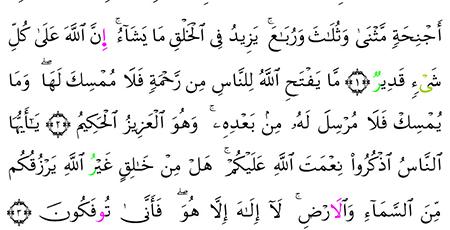 أَجْنِحَةٍ مَّثْنَىٰ وَثُلَٰثَ وَرُبَٰعَ ۚ يَزِيدُ فِى الْخَلْقِ مَا يَشَآءُ ۚ إِنَّ اللَّهَ عَلَىٰ كُلِّ
شَىْءٍ قَدِيرٌ ﴿١﴾ مَّا يَفْتَحِ اللَّهُ لِلنَّاسِ مِن رَّحْمَةٍ فَلَا مُمْسِكَ لَهَا ۖ وَمَا
يُمْسِكْ فَلَا مُرْسِلَ لَهُۥ مِنۢ بَعْدِهِۦ ۚ وَهُوَ الْعَزِيزُ الْحَكِيمُ ﴿٢﴾ يَٰٓأَيُّهَا
النَّاسُ اذْكُرُوا۟ نِعْمَتَ اللَّهِ عَلَيْكُمْ ۚ هَلْ مِنْ خَٰلِقٍ غَيْرُ اللَّهِ يَرْزُقُكُم
مِّنَ السَّمَآءِ وَالَارْضِ ۚ لَآ إِلَٰهَ إِلَّا هُوَ ۖ فَأَنَّىٰ تُوفَكُونَ ﴿٣﴾